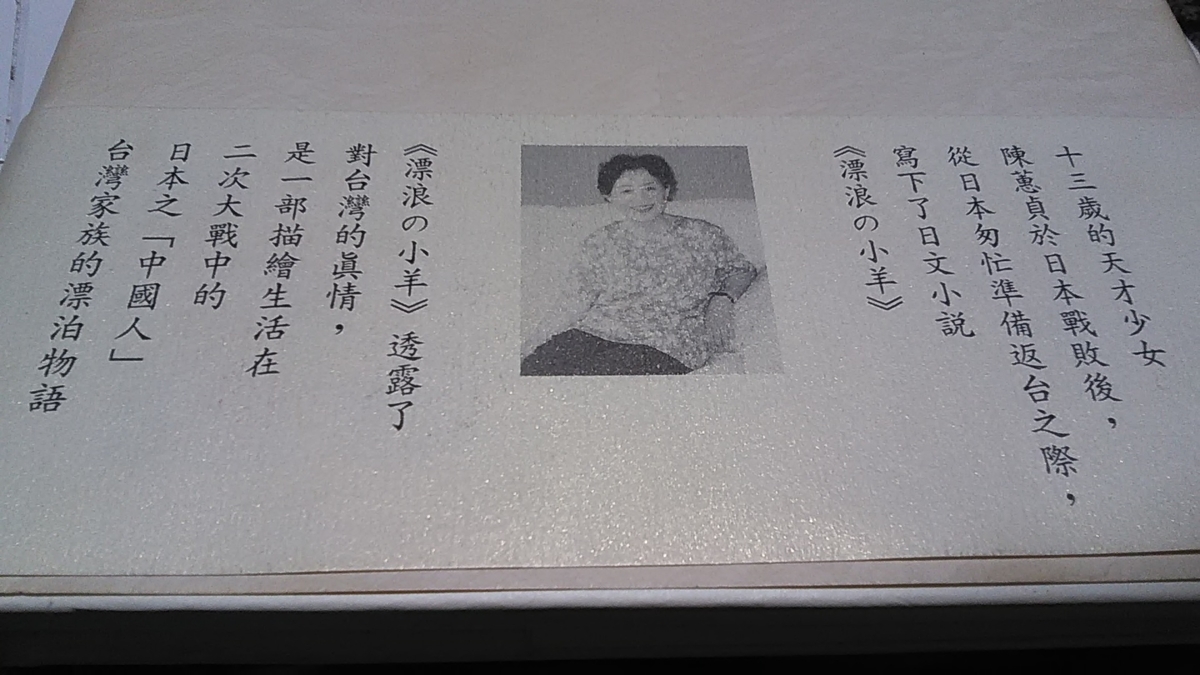 十三歲的天才少女
陳蕙貞於日本戰敗後，
從日本匆忙準備返台之際，
寫下了日文小説
《漂浪の小羊》
《漂浪の小羊》透露了
對台灣的眞情，
是一部描繪生活在
二次大戰中的
日本之「中國人」
台灣家族的漂泊物語